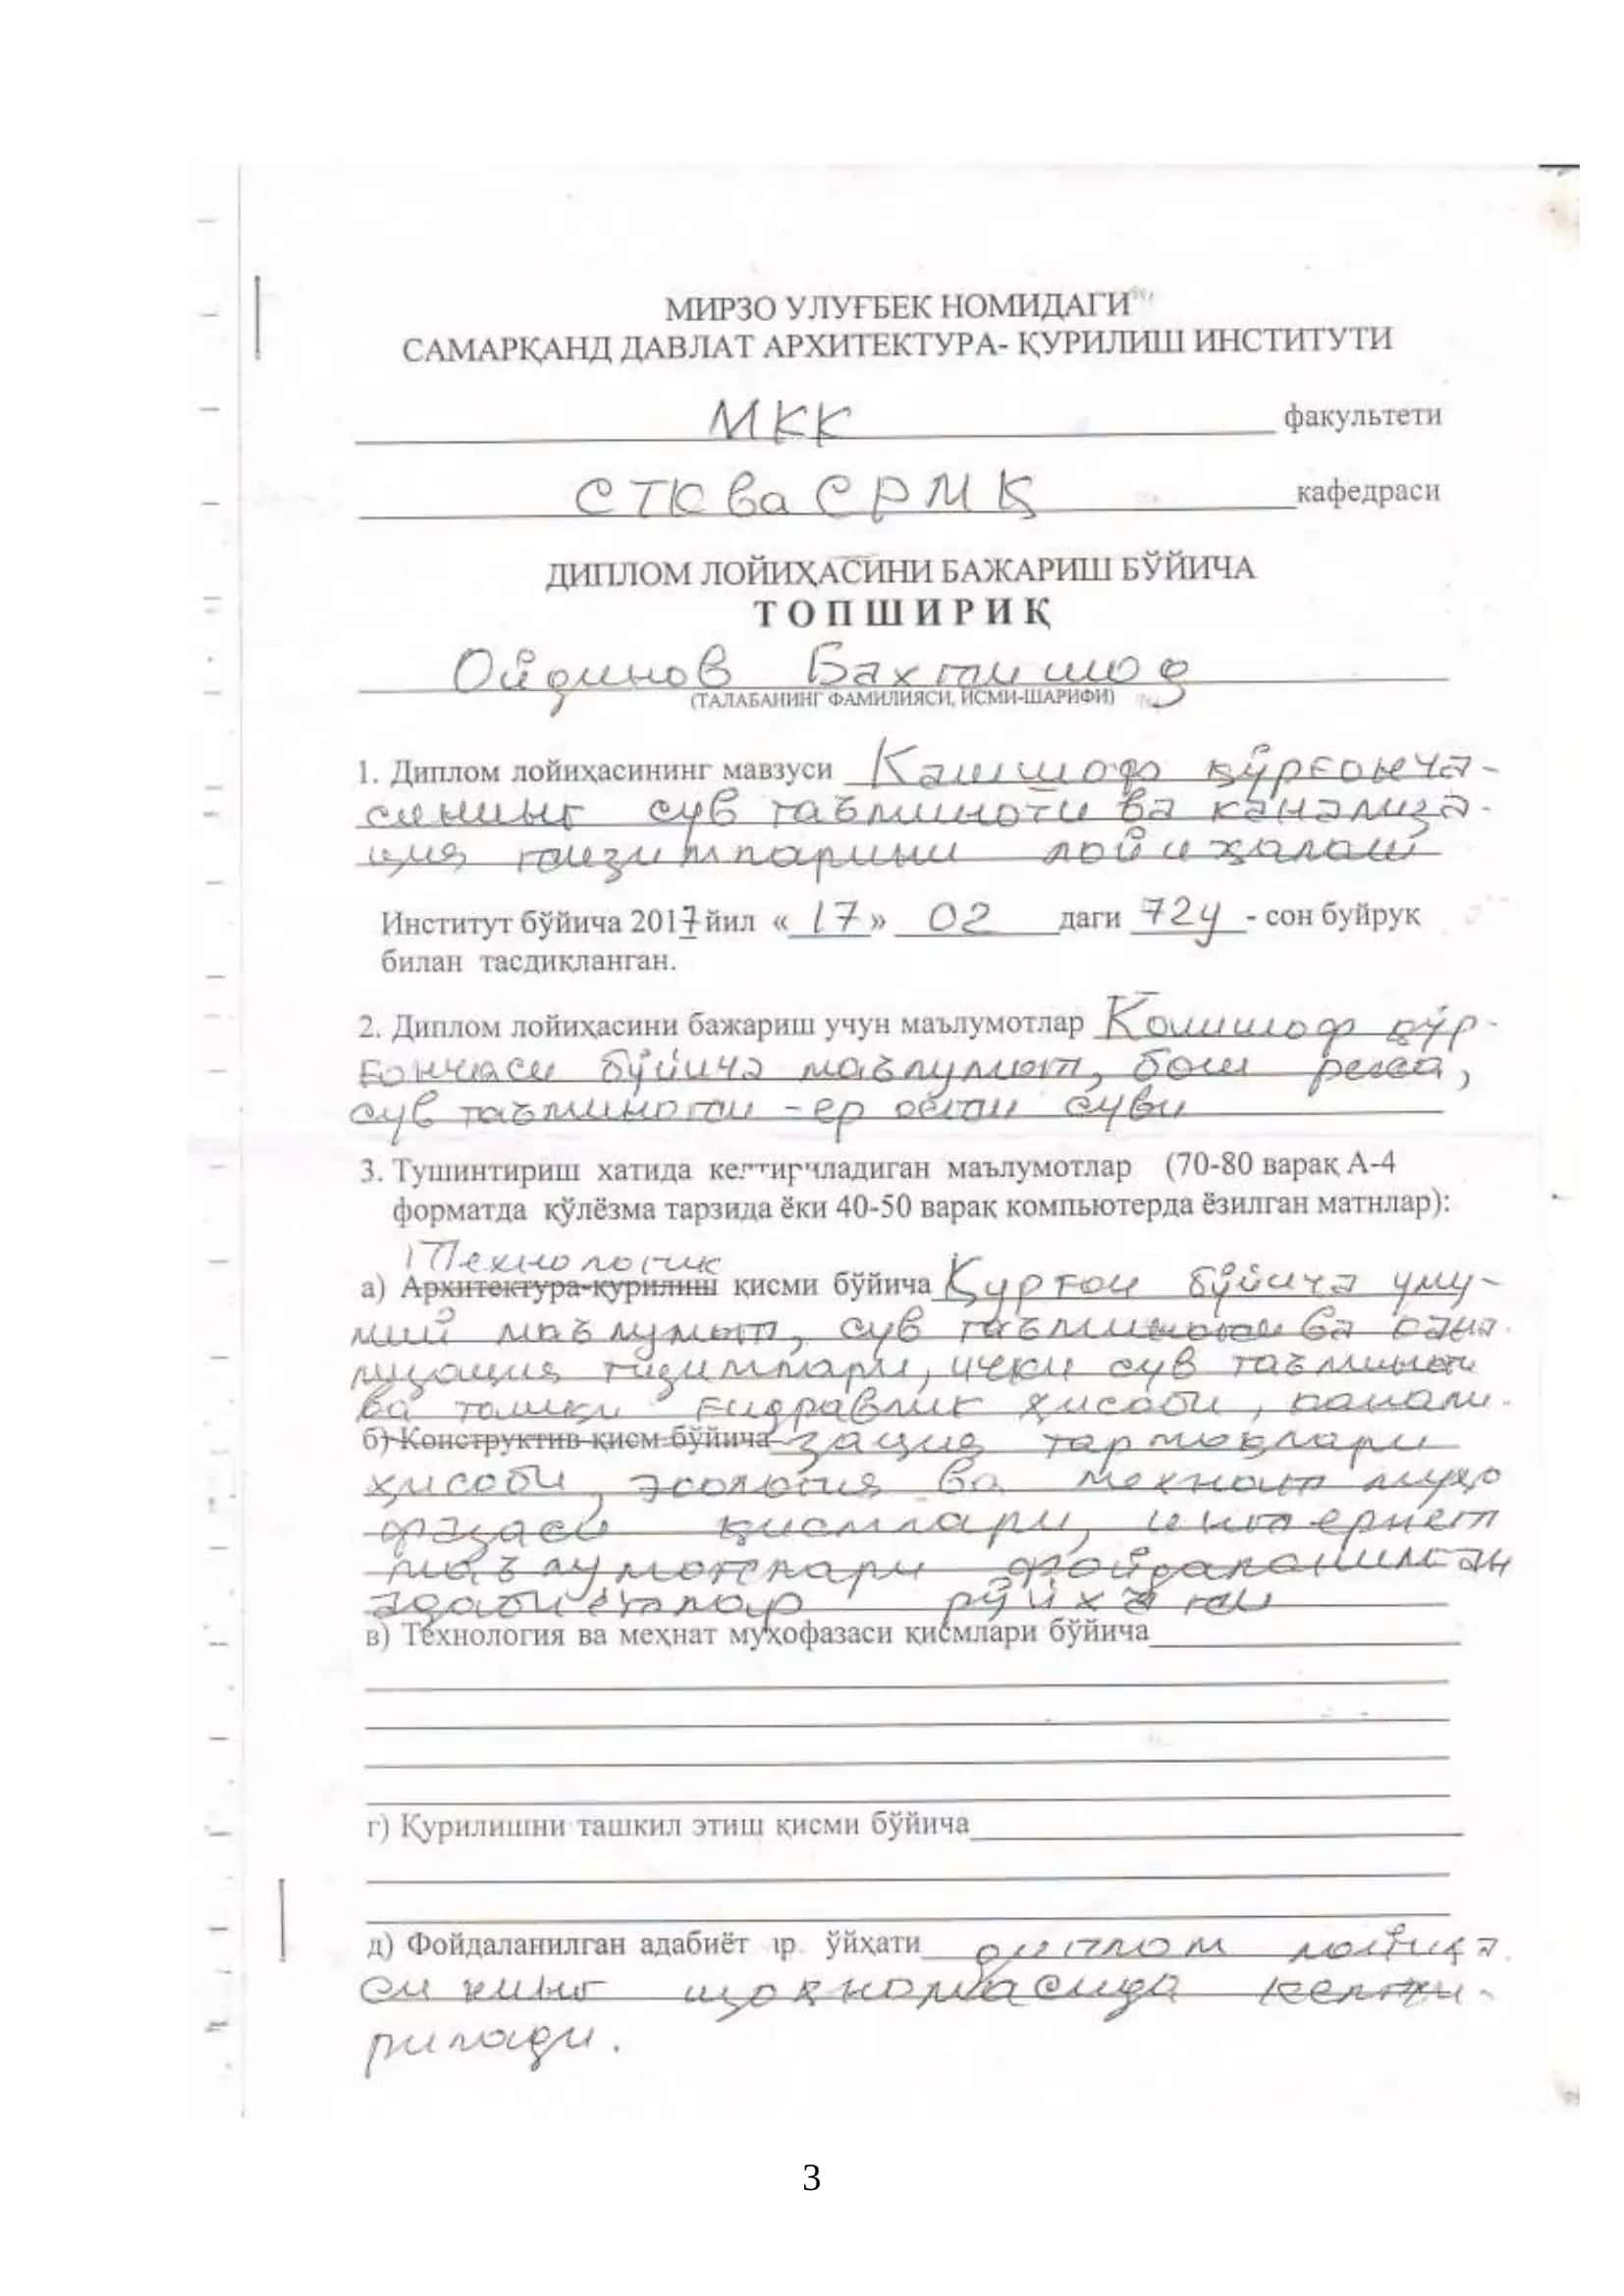 МИРЗО УЛУҒБЕК НОМИДАГИ
САМАРҚАНД ДАВЛАТ АРХИТЕКТУРА- ҚУРИЛИШ ИНСТИТУТИ
МКК факультети
СТК ва СРМҚ кафедраси
ДИПЛОМ ЛОЙИҲАСИНИ БАЖАРИШ БЎЙИЧА
ТОПШИРИҚ
Ойдинов Бахтишод
(ТАЛАБАНИНГ ФАМИЛИЯСИ, ИСМИ-ШАРИФИ)
1. Диплом лойиҳасининг мавзуси Кашшоф қўрғонча-
сининг сув таъминоти ва канализа-
ция тизимларини лойиҳалаш
Институт бўйича 2017 йил «17» 02 даги 72у - сон буйруқ
билан тасдиқланган.
2. Диплом лойиҳасини бажариш учун маълумотлар Кашшоф қўр-
ғончаси бўйича маълумот, бош режа,
сув таъминоти - ер ости суви
3. Тушинтириш хатида келтириладиган маълумотлар (70-80 варақ А-4
форматда қўлёзма тарзида ёки 40-50 варақ компьютерда ёзилган матнлар):
Технологик
а) Архитектура-қурилиш қисми бўйича Қурғон бўйича уму-
мий маълумот, сув таъминоти ва кана-
лизация тизимлари, ички сув таъминоти
ва ташқи гидравлик ҳисоби, канали-
б) Конструктив қисм бўйича зация тармоқлари
ҳисоби, экология ва меҳнат муҳо
фазаси қисмлари, интернет
маълумотлари фойдаланилган
адабиётлар рўйхати
в) Технология ва меҳнат муҳофазаси қисмлари бўйича
г) Қурилишни ташкил этиш қисми бўйича
д) Фойдаланилган адабиёт ар ўйҳати диплом лойиҳа
сининг изоҳномасида келти-
рилади.
3